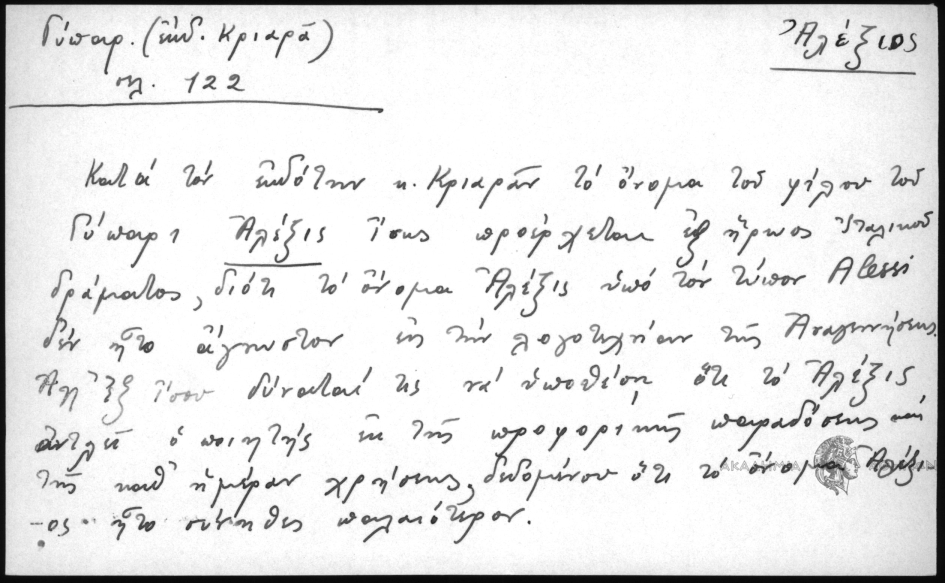 Γύπαρ. (ἔκδ. Κριαρᾶ)
Ἀλέξιος
σελ. 122
Κατά τόν ἐκδότην κ. Κριαρᾶν τό ὄνομα τοῦ φίλου τοῦ
Γύπαρι Ἀλέξις ἴσως προέρχεται ἐξ ἥρωος Ἰταλικοῦ
δράματος, διότι τό ὄνομα Ἀλέξις ὑπό τόν τύπον Alessi
δέν ἦτο ἄγνωστον εἰς τήν λογοτεχνίαν τῆς Ἀναγεννήσεως.
Ἀλλ' ἐξ ἴσου δύναταί τις νά ὑποθέση ὅτι τό Ἀλέξις
ἀντλεῖ ὁ ποιητής ἐκ τῆς προφορικῆς παραδόσεως καί
τῆς καθ' ἡμέραν χρήσεως, δεδομένου ὅτι τό ὄνομα Ἀλέξι-
-ος ἦτο σύνηθες παλαιότερον.
ΑΚΑΔΗΜΙΑ